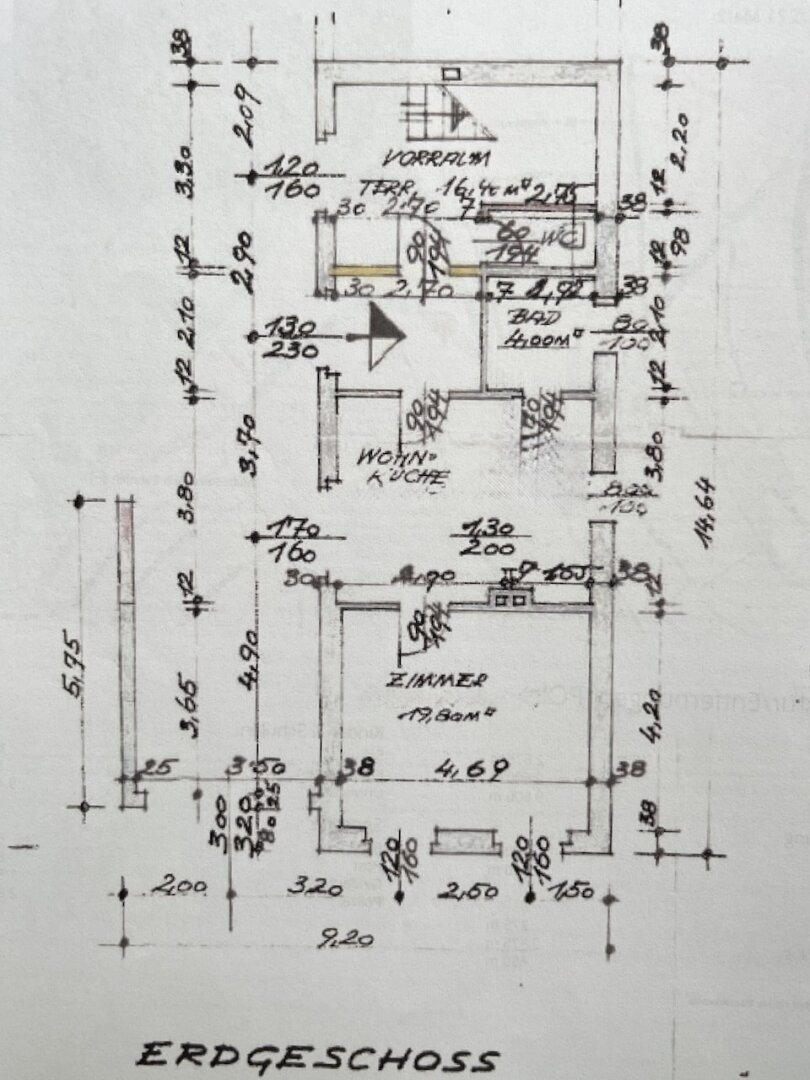 38
38
2,09
2,20
3,30
VORRAUM
120
160
TERR. 16,40 m²
2,75
12
30 2,70 7
38
60
194
WC
98
90
194
12
2,90
12
30 2,70 7 38
BAD
4,00m²
80
100
2,10
2,10
130
230
12
12
90
194
70
194
3,70
WOHN=
KÜCHE
3,80
3,80
80
100
14,64
170
160
1,30
200
30
38
12
12
90
194
5,75
4,90
ZIMMER
19,80m²
3,65
4,20
25 3,50 38 4,69 38
300
320
80 25
38
120
160
120
160
2,00 3,20 2,60 1,50
9,20
ERDGESCHOSS